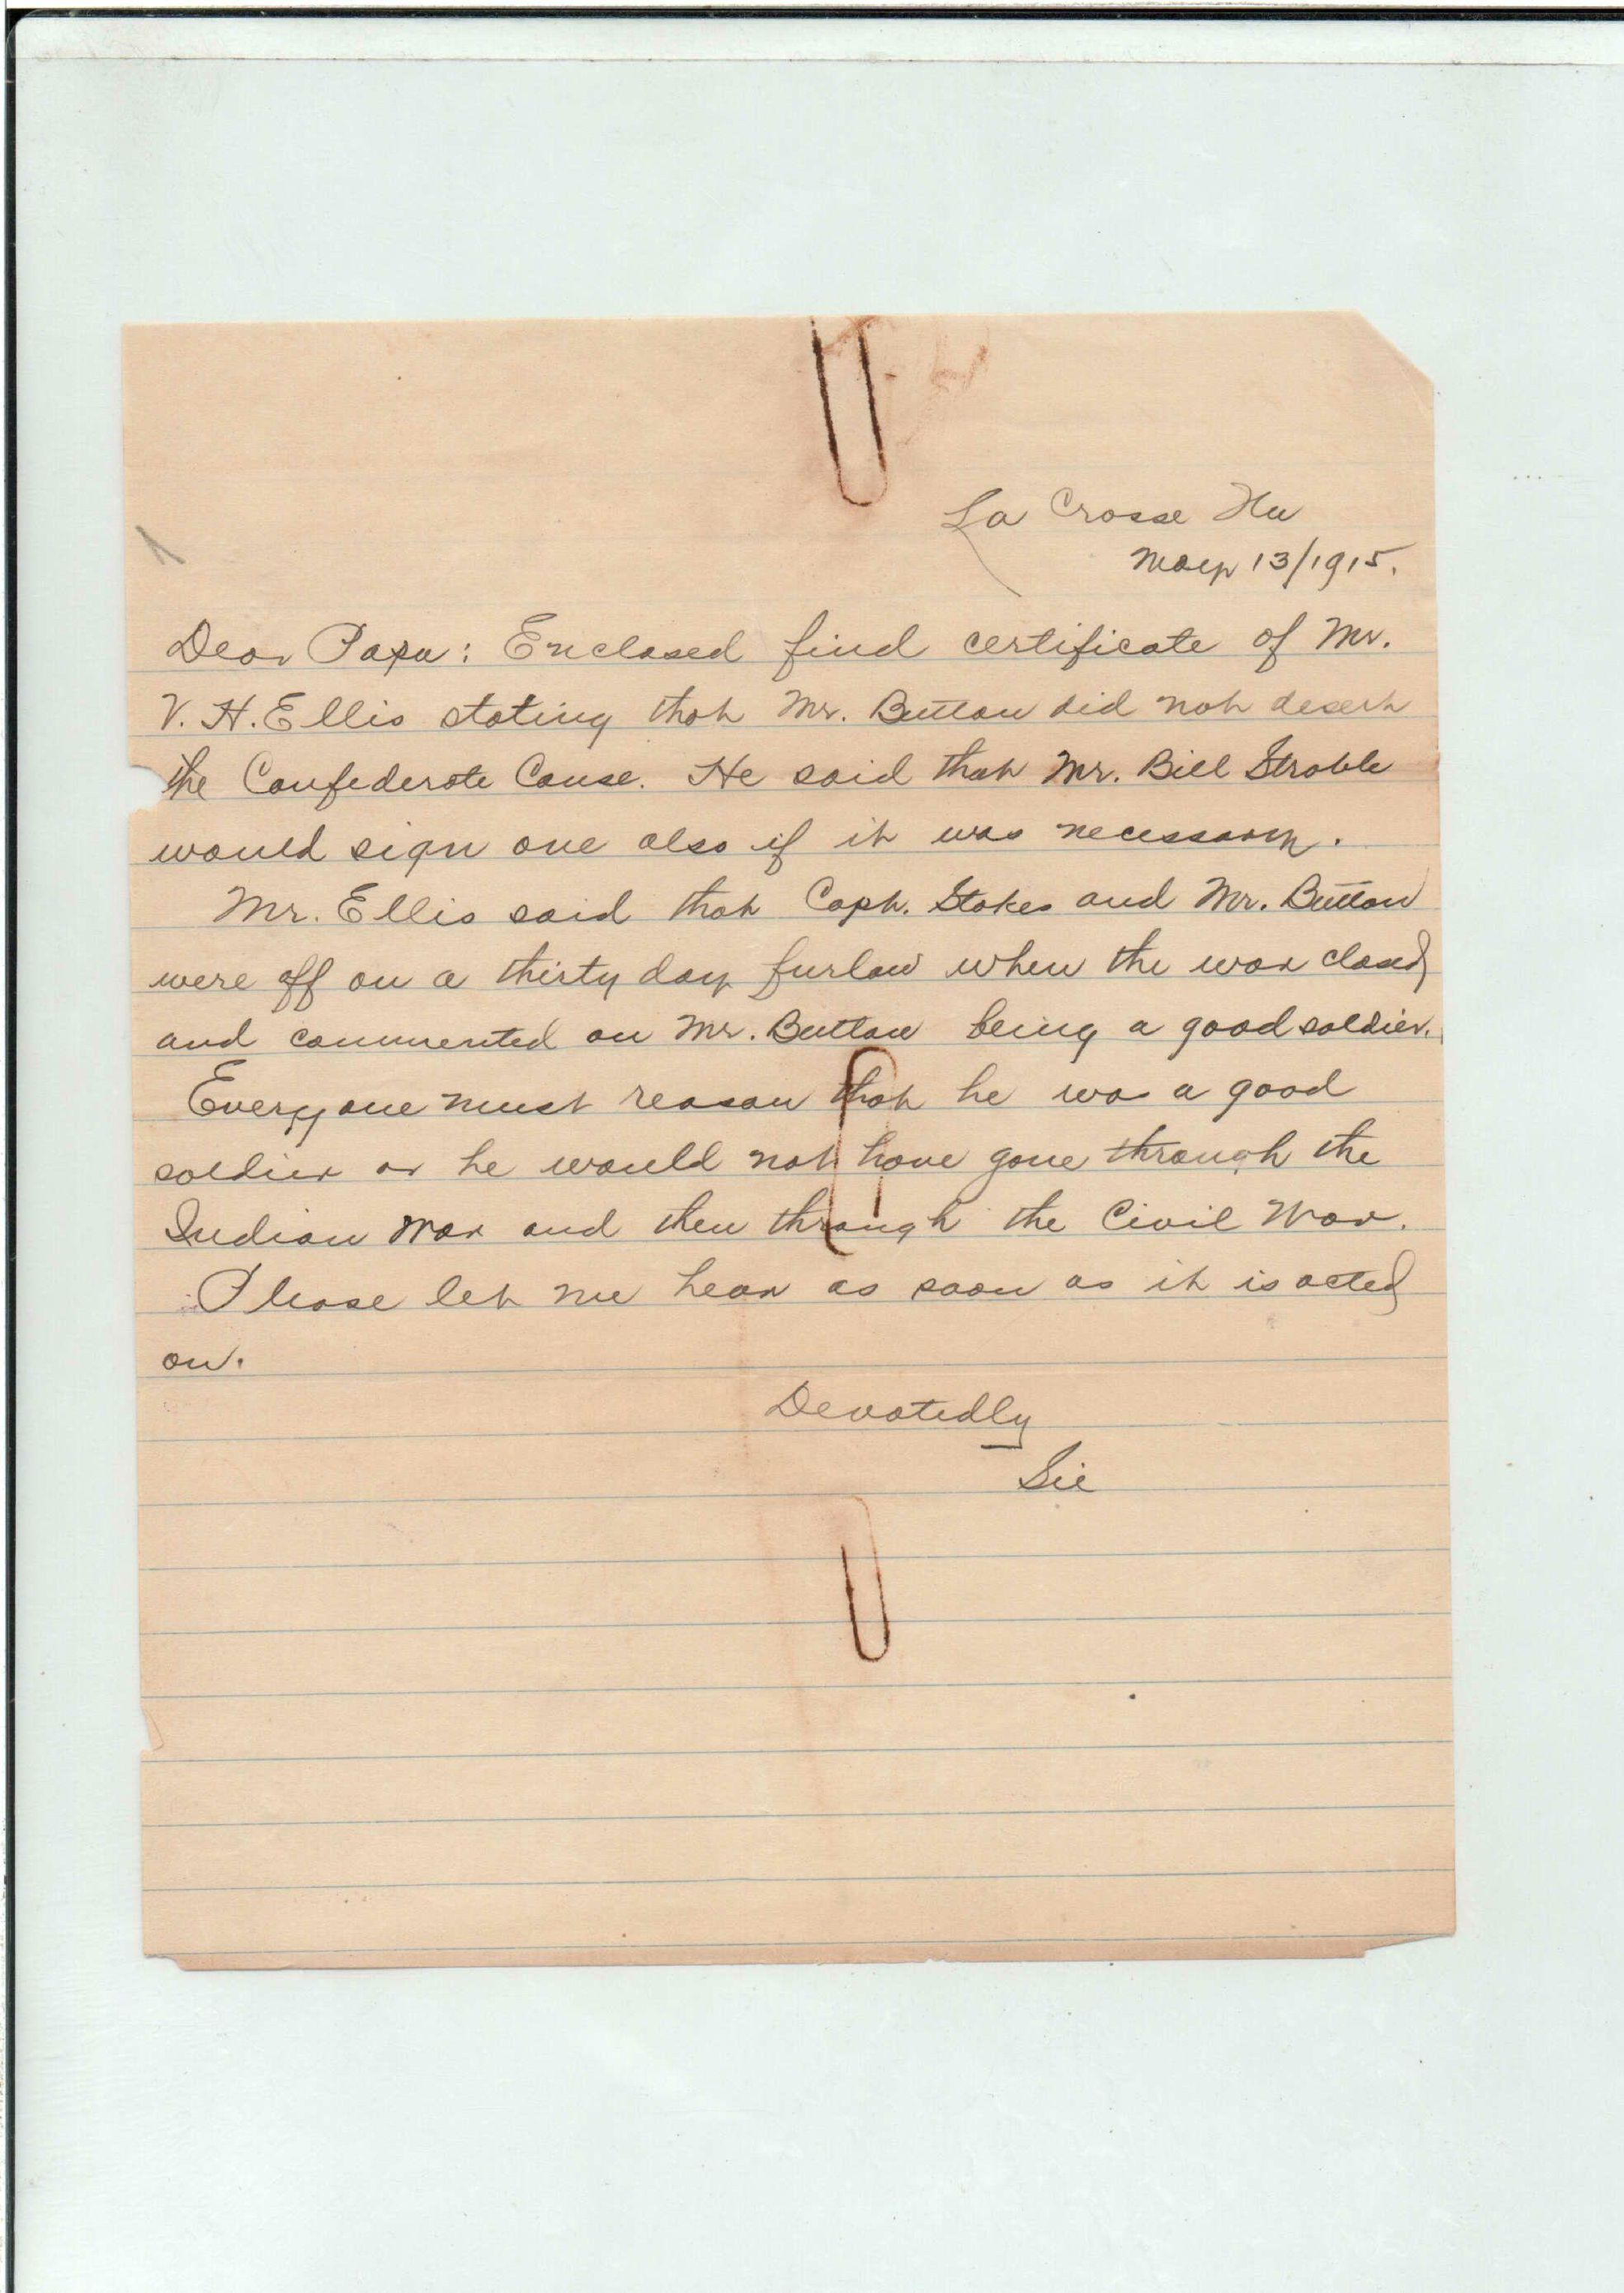 La Crosse Fla
May 13/1915.
Dear Papa: Enclosed find certificate of Mr.
V. H. Ellis stating that Mr. Button did not desert
the Confederate Cause. He said that Mr. Bill Stroble
would sign one also if it was necessary.
Mr. Ellis said that Capt. Stokes and Mr. Button
were off on a thirty day furlow when the war closed
and commented on Mr. Button being a good soldier.
Everyone must reason that he was a good
soldier or he would not have gone through the
Indian War and then through the Civil War.
Please let me hear as soon as it is acted
on.
Devotedly
Sie